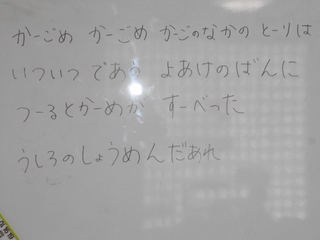 かーごめ かーごめ かーごのなかの とーりは
いついつ であう よあけのばんに
つーるとかーめが すーべった
うしろのしょうめんだあれ